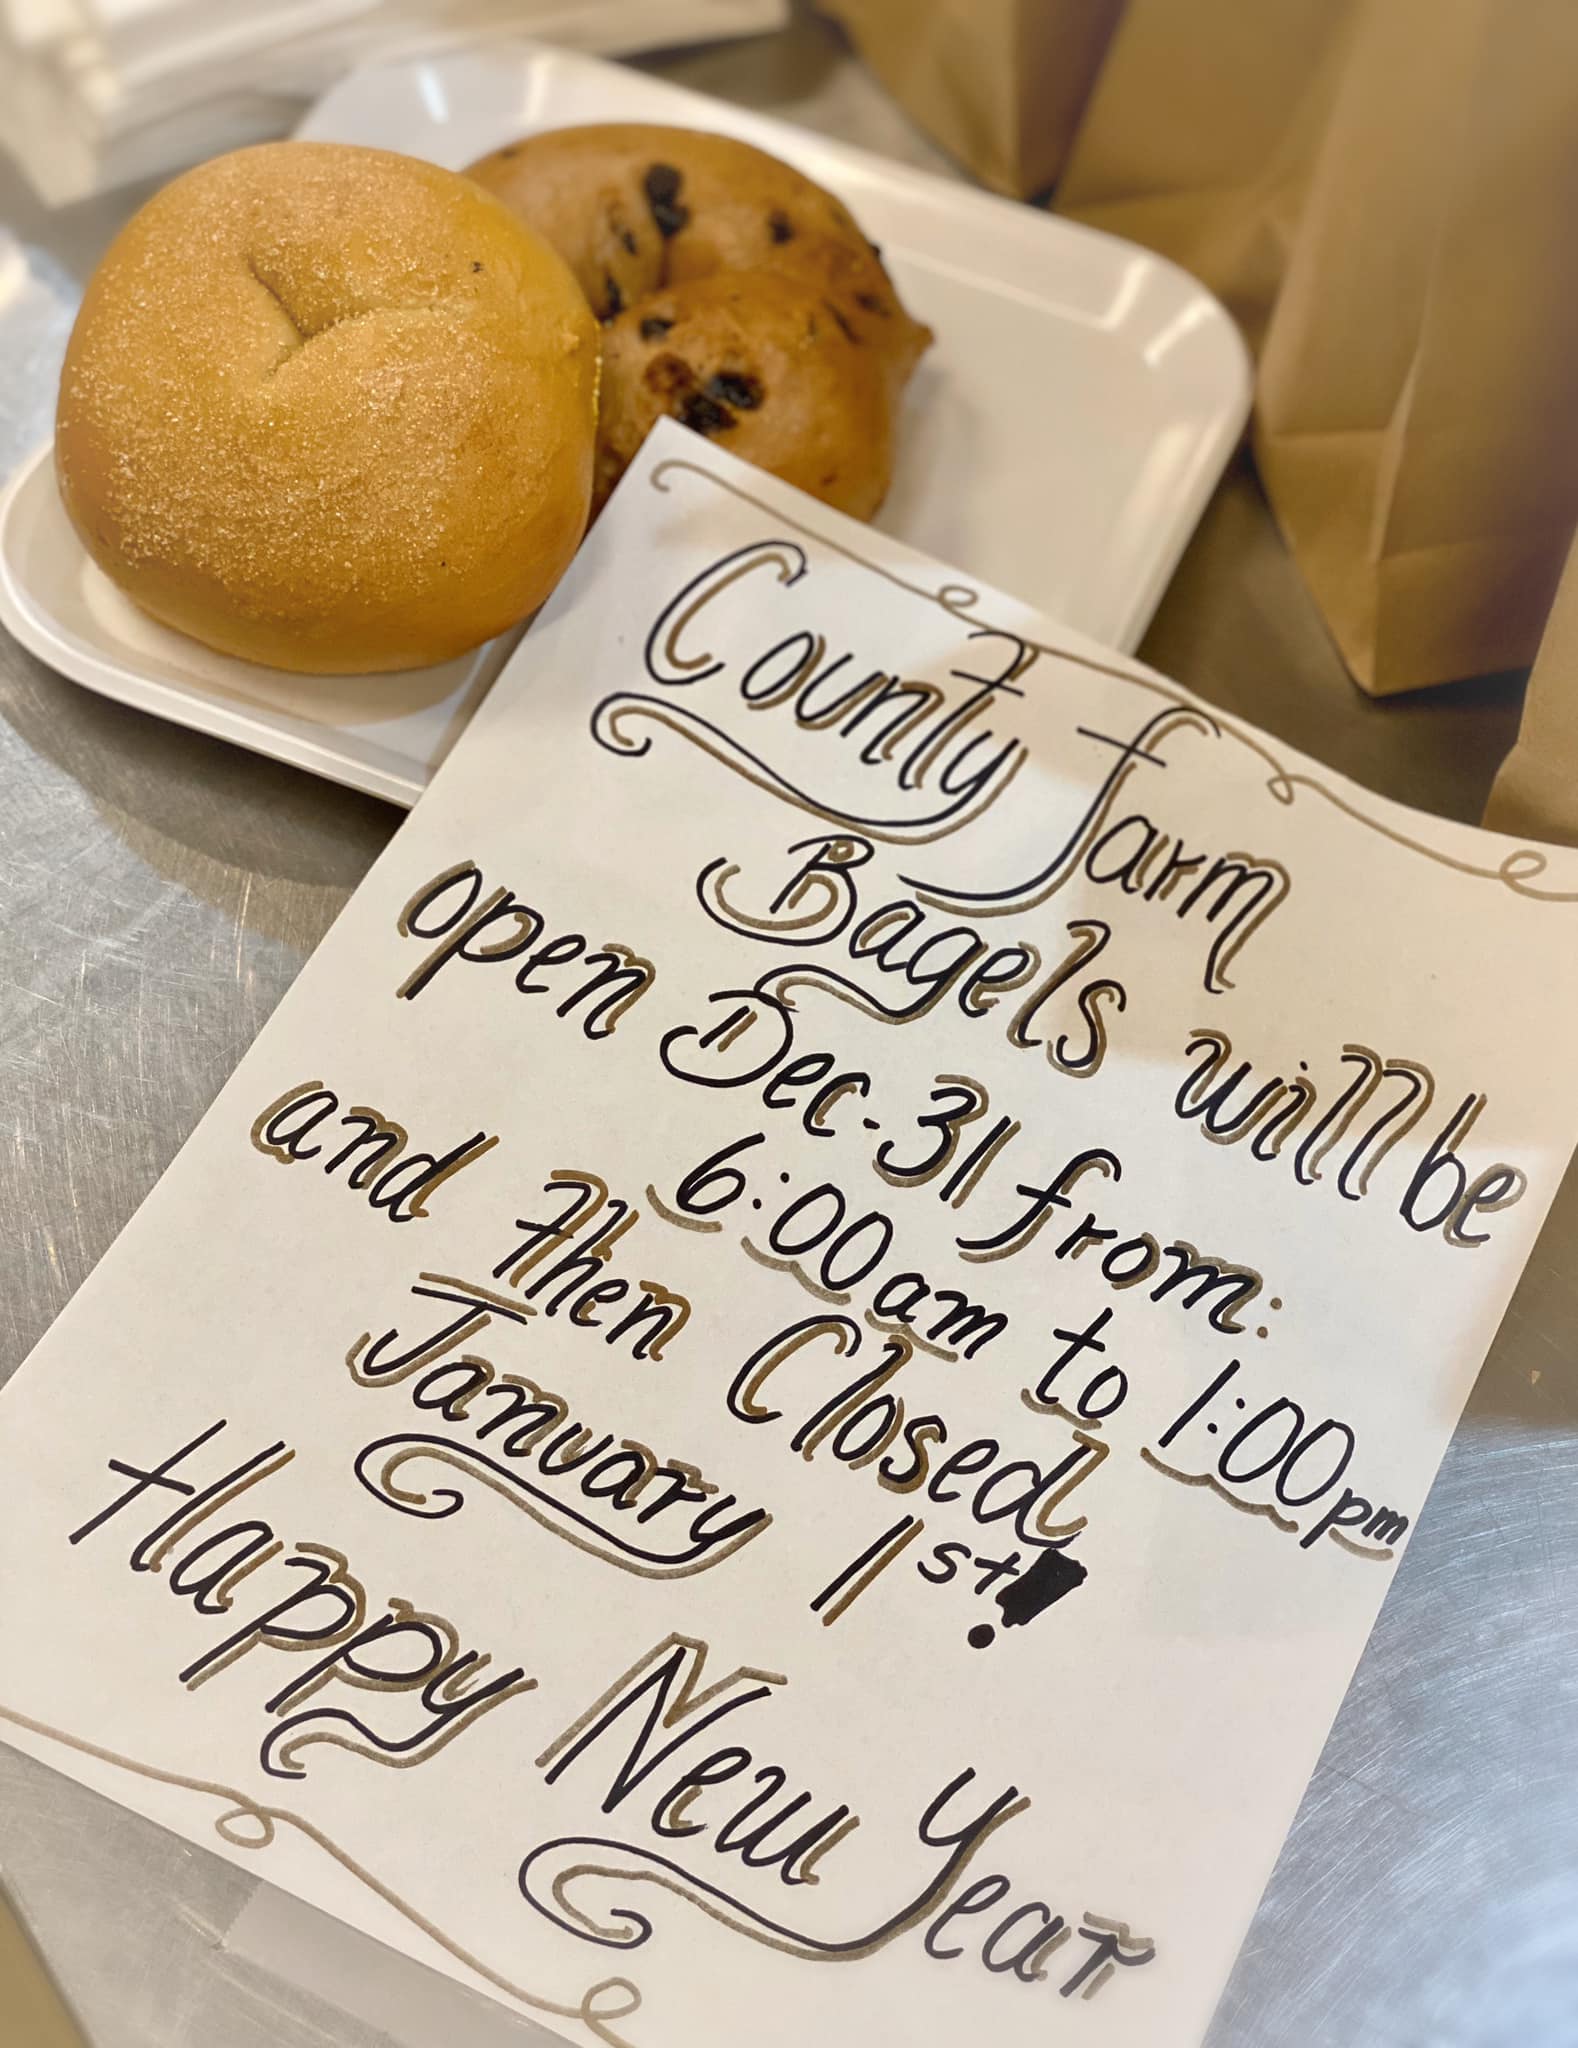 County Farm
Bagels will be
open Dec. 31 from:
6:00am to 1:00pm
and then Closed
January 1st!
Happy New Year